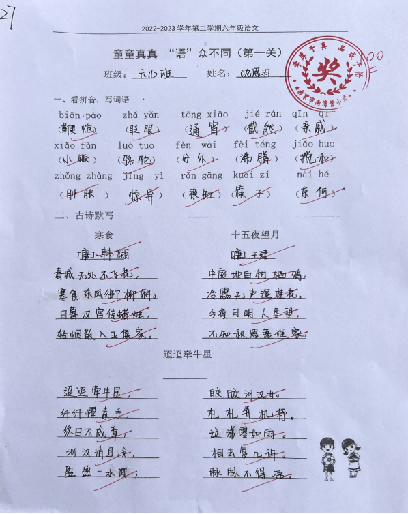 2022-2023学年第二学期六年级语文
童童真真 “语”众不同（第一关）
班级： 姓名：
一、看拼音，写词语
biān pào zhǎ yǎn tōng xiāo jié rán qīn qi
（鞭炮）（眨眼）（通宵）（截然）（亲戚）
xiāo fàn luò tuo fèn wài fèi téng jiǎo huo
（小贩）（骆驼）（分外）（沸腾）（搅和）
zhǒng zhàng jīng yì rǎn gāng kuài zi nài hé
（肿胀）（惊异）（染缸）（筷子）（奈何）
二、古诗默写
寒食 十五夜望月
唐 韩翃 唐 王建
春城无处不飞花， 中庭地白树栖鸦，
寒食东风御柳斜。 冷露无声湿桂花。
日暮汉宫传蜡烛， 今夜月明人尽望，
轻烟散入五侯家。 不知秋思落谁家。
迢迢牵牛星
迢迢牵牛星， 皎皎河汉女。
纤纤擢素手， 札札弄机杼。
终日不成章， 泣涕零如雨。
河汉清且浅， 相去复几许。
盈盈一水间， 脉脉不得语。